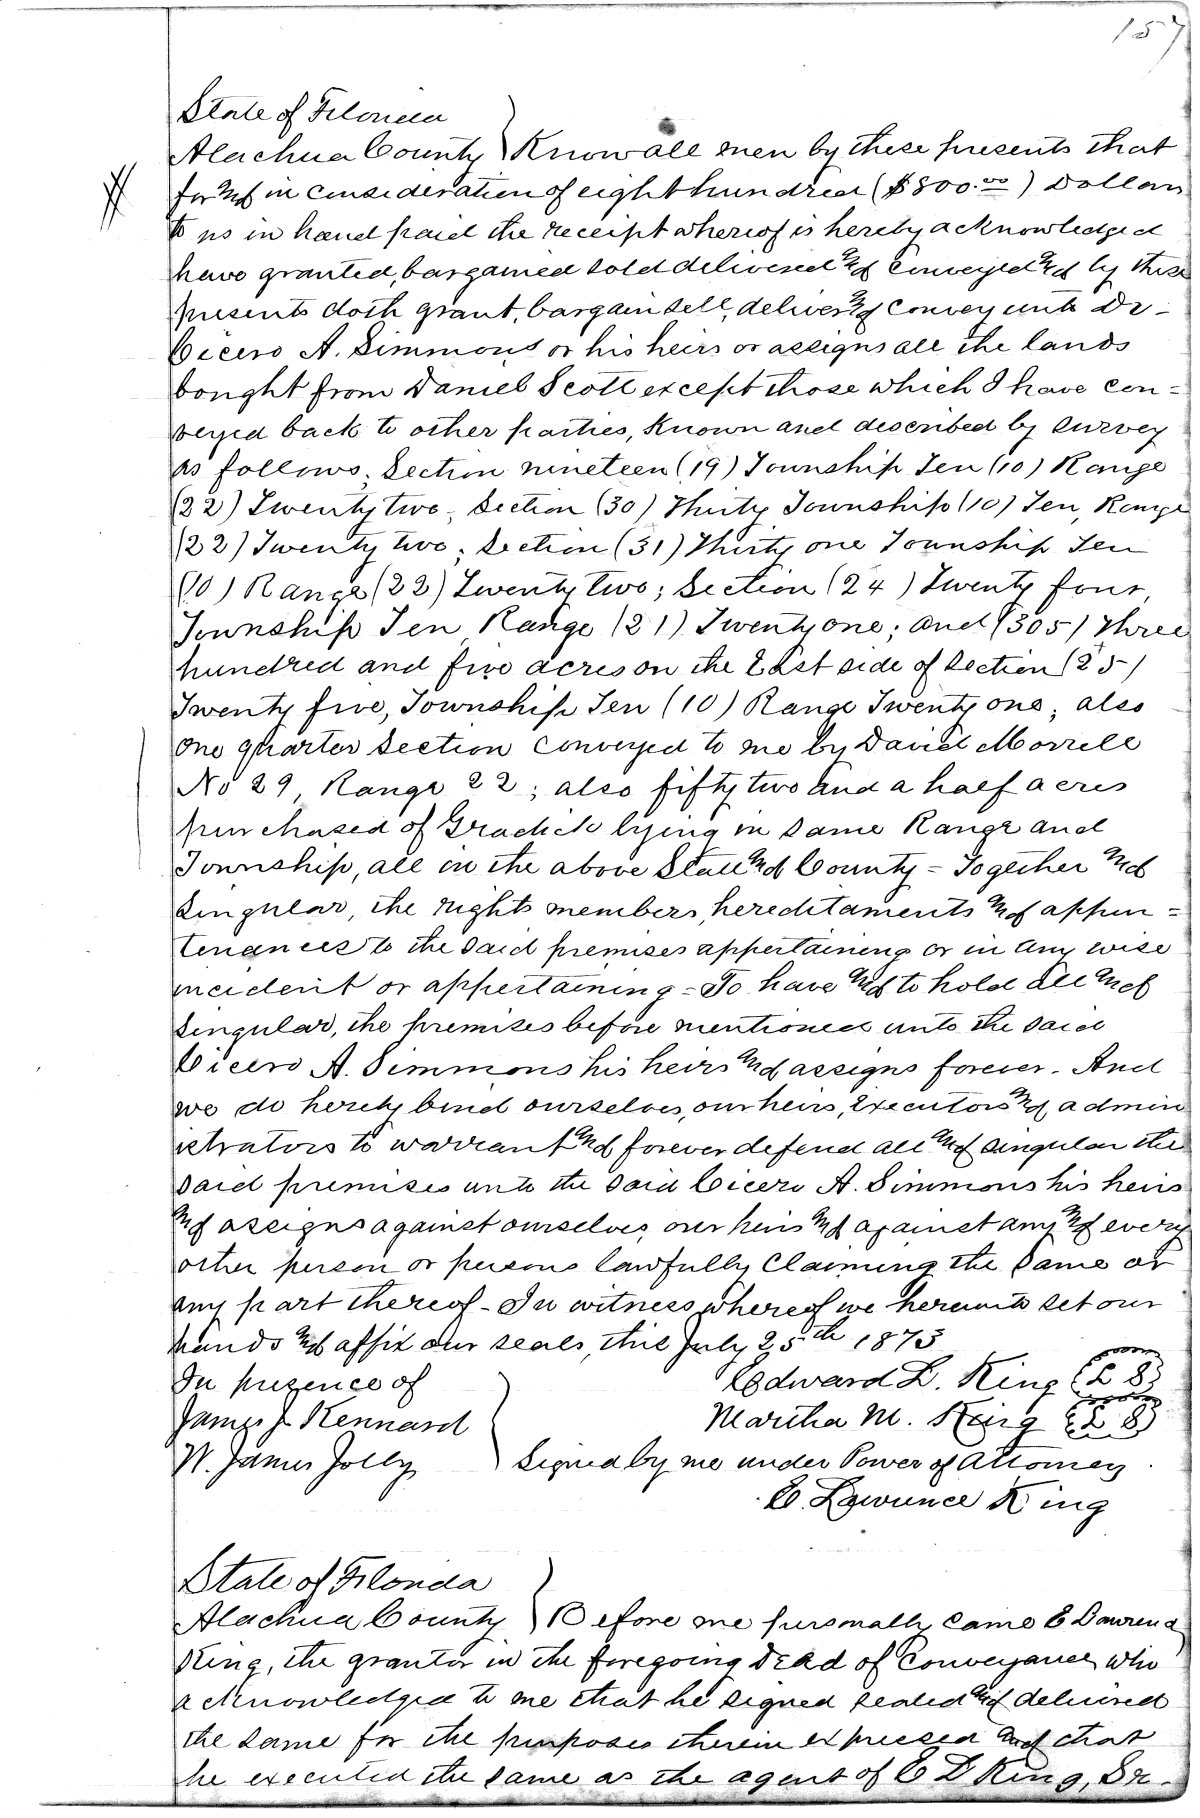 157
State of Florida
Alachua County } Know all men by these presents that
for and in consideration of eight hundred ($800.00) Dollars
to us in hand paid the receipt whereof is hereby acknowledged
have granted, bargained sold delivered and conveyed and by these
presents doth grant, bargain sell, deliver and convey unto Dr-
Cicero A. Simmons or his heirs or assigns all the lands
bought from Daniel Scott except those which I have con=
veyed back to other parties, Known and described by survey
as follows; Section nineteen (19) Township Ten (10) Range
(22) Twenty two; Section (30) Thirty Township (10) Ten, Range
(22) Twenty two; Section (31) Thirty one Township Ten
(10) Range (22) Twenty two; Section (24) Twenty four,
Township Ten, Range (21) Twenty one; and (305) three
hundred and five acres on the East side of Section (25)
Twenty five, Township Ten (10) Range Twenty one; also
one quarter Section conveyed to me by David Morrell
No 29, Range 22; also fifty two and a half acres
purchased of Gradick lying in same Range and
Township, all in the above State and County = Together and
Singular, the rights members, hereditaments and appur=
tenances to the said premises appertaining or in any wise
incident or appertaining = To have and to hold all and
singular, the premises before mentioned unto the said
Cicero A. Simmons his heirs and assigns forever. And
we do hereby bind ourselves, our heirs, Executors and admin
istrators to warrant and forever defend all and singular the
said premises unto the said Cicero A. Simmons his heirs
and assigns against ourselves, our heirs and against any and every
other person or persons lawfully claiming the same or
any part thereof - In witness whereof we hereunto set our
hands and affix our seals, this July 25th 1873
In presence of Edward L. King (L S)
James J. Kennard Martha M. King (L S)
W. James Jolly } Signed by me under Power of Attorney.
E. Lawrence King
State of Florida
Alachua County } Before me personally came E Lawrence
King, the grantor in the foregoing Deed of Conveyance who
acknowledged to me that he signed sealed and delivered
the same for the purposes therein expressed and that
he executed the same as the agent of E L King, Sr.